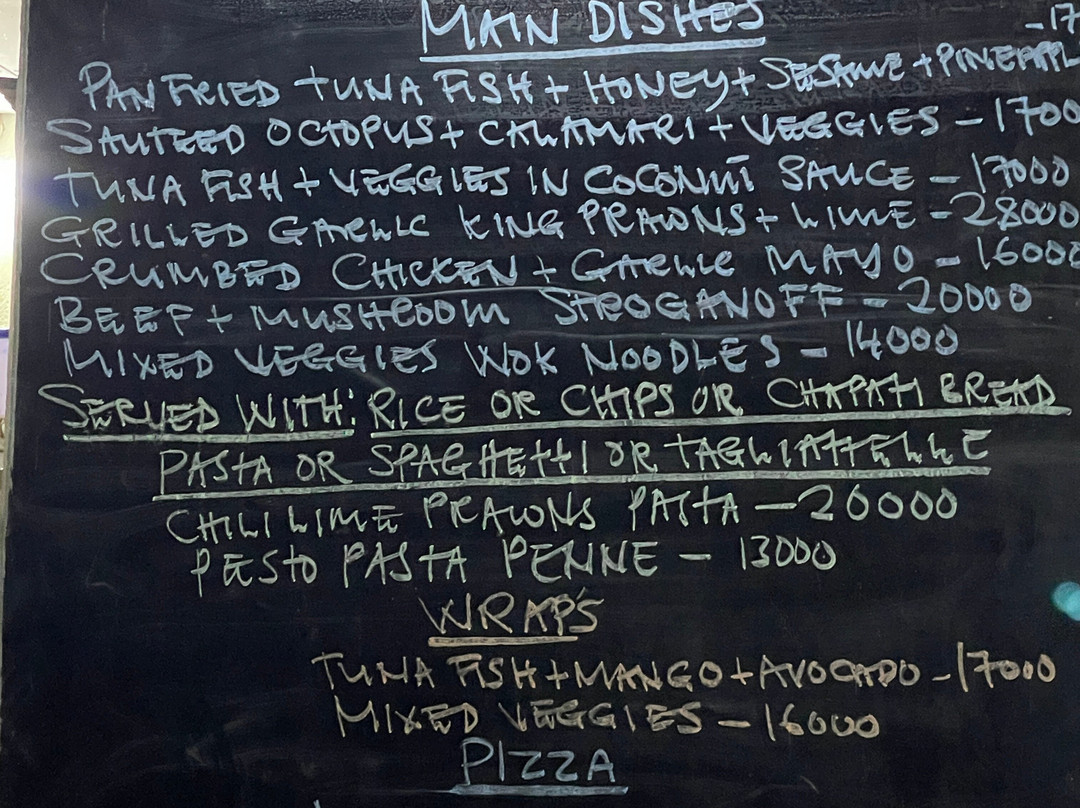 MAIN DISHES
-17
PAN FRIED TUNA FISH + HONEY + SESAME + PINEAPPL
SAUTEED OCTOPUS + CALAMARI + VEGGIES - 1700
TUNA FISH + VEGGIES IN COCONUT SAUCE - 17000
GRILLED GARLIC KING PRAWNS + LIME - 28000
CRUMBED CHICKEN + GARLIC MAYO - 16000
BEEF + MUSHROOM STROGANOFF - 20000
MIXED VEGGIES WOK NOODLES - 14000
SERVED WITH: RICE OR CHIPS OR CHAPATI BREAD
PASTA OR SPAGHETTI OR TAGLIATTELLE
CHILI LIME PRAWNS PASTA - 20000
PESTO PASTA PENNE - 13000
WRAP'S
TUNA FISH + MANGO + AVOCADO - 17000
MIXED VEGGIES - 16000
PIZZA